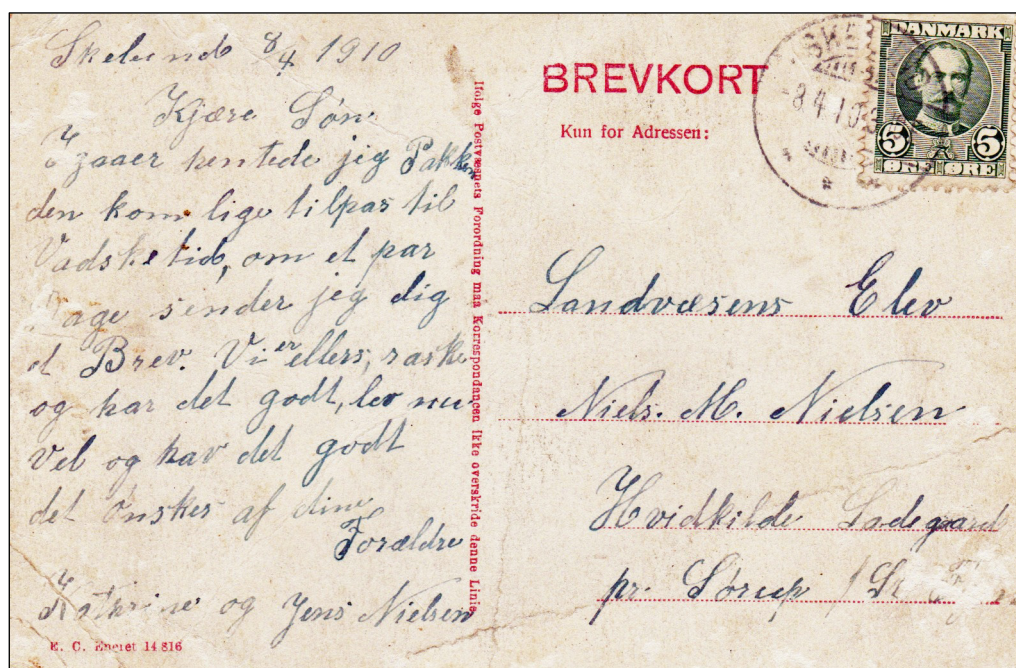 Skelund 8/4 1910
Kjære Søn
I gaaer hentede jeg Pakken
den kom lige tilpas til
Vadsketid, om et par
Dage sender jeg dig
et Brev. Vi er ellers, raske
og har det godt, lev nu
vel og hav det godt
det ønskes af dine
Forældre
Katrine og Jens Nielsen
E. C. Eneret 14 816
Ifølge Postvæsnets Forordning maa Korrespondancen ikke overskride denne Linie
BREVKORT
Kun for Adressen:
DANMARK
5 5
ØRE ØRE
8.4.10
Landvæsens Elev
Niels. M. Nielsen
Hvidkilde Ladegaard
pr. Sørup